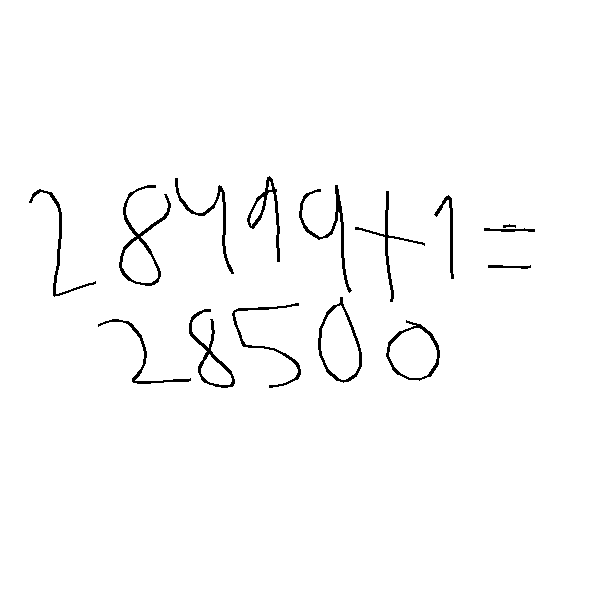 28499+1=
28500